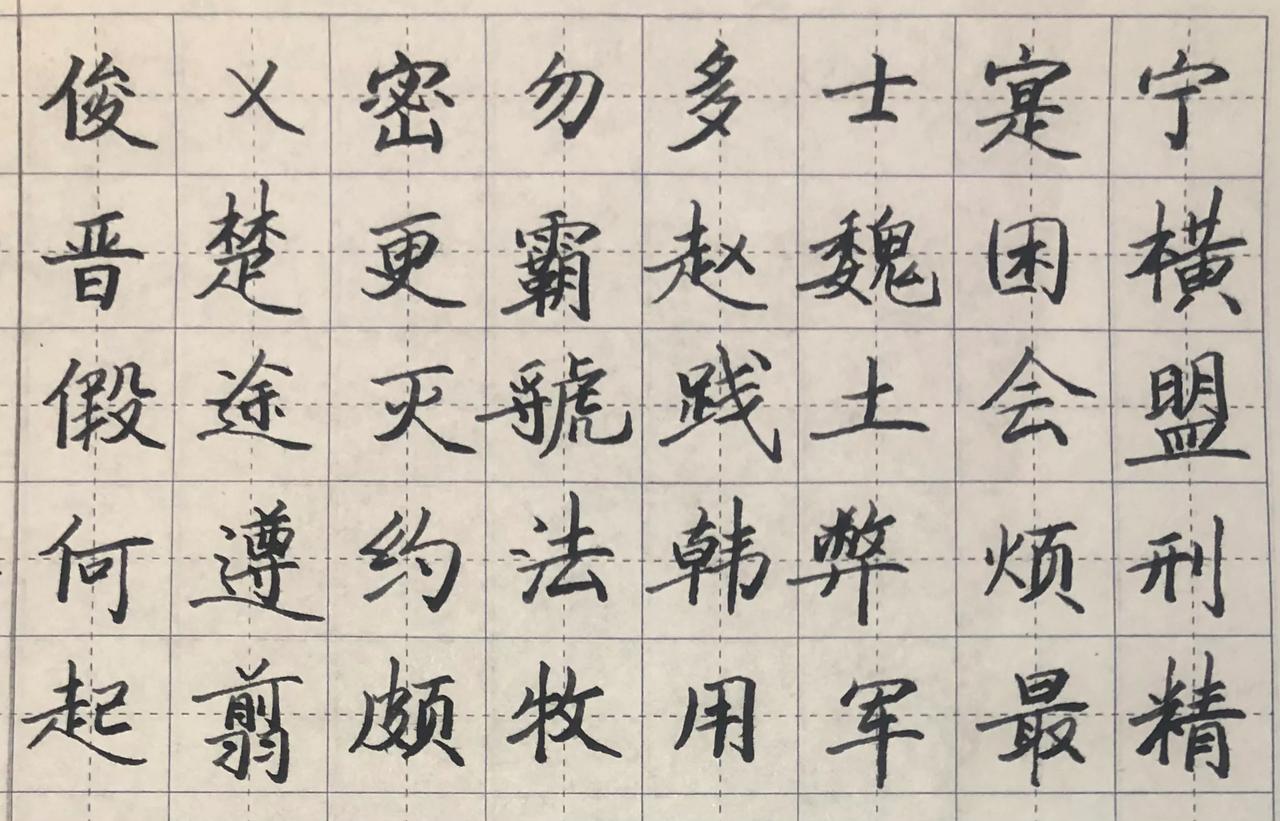 俊乂密勿多士寔宁
晋楚更霸赵魏困横
假途灭虢践土会盟
何遵约法韩弊烦刑
起翦颇牧用军最精